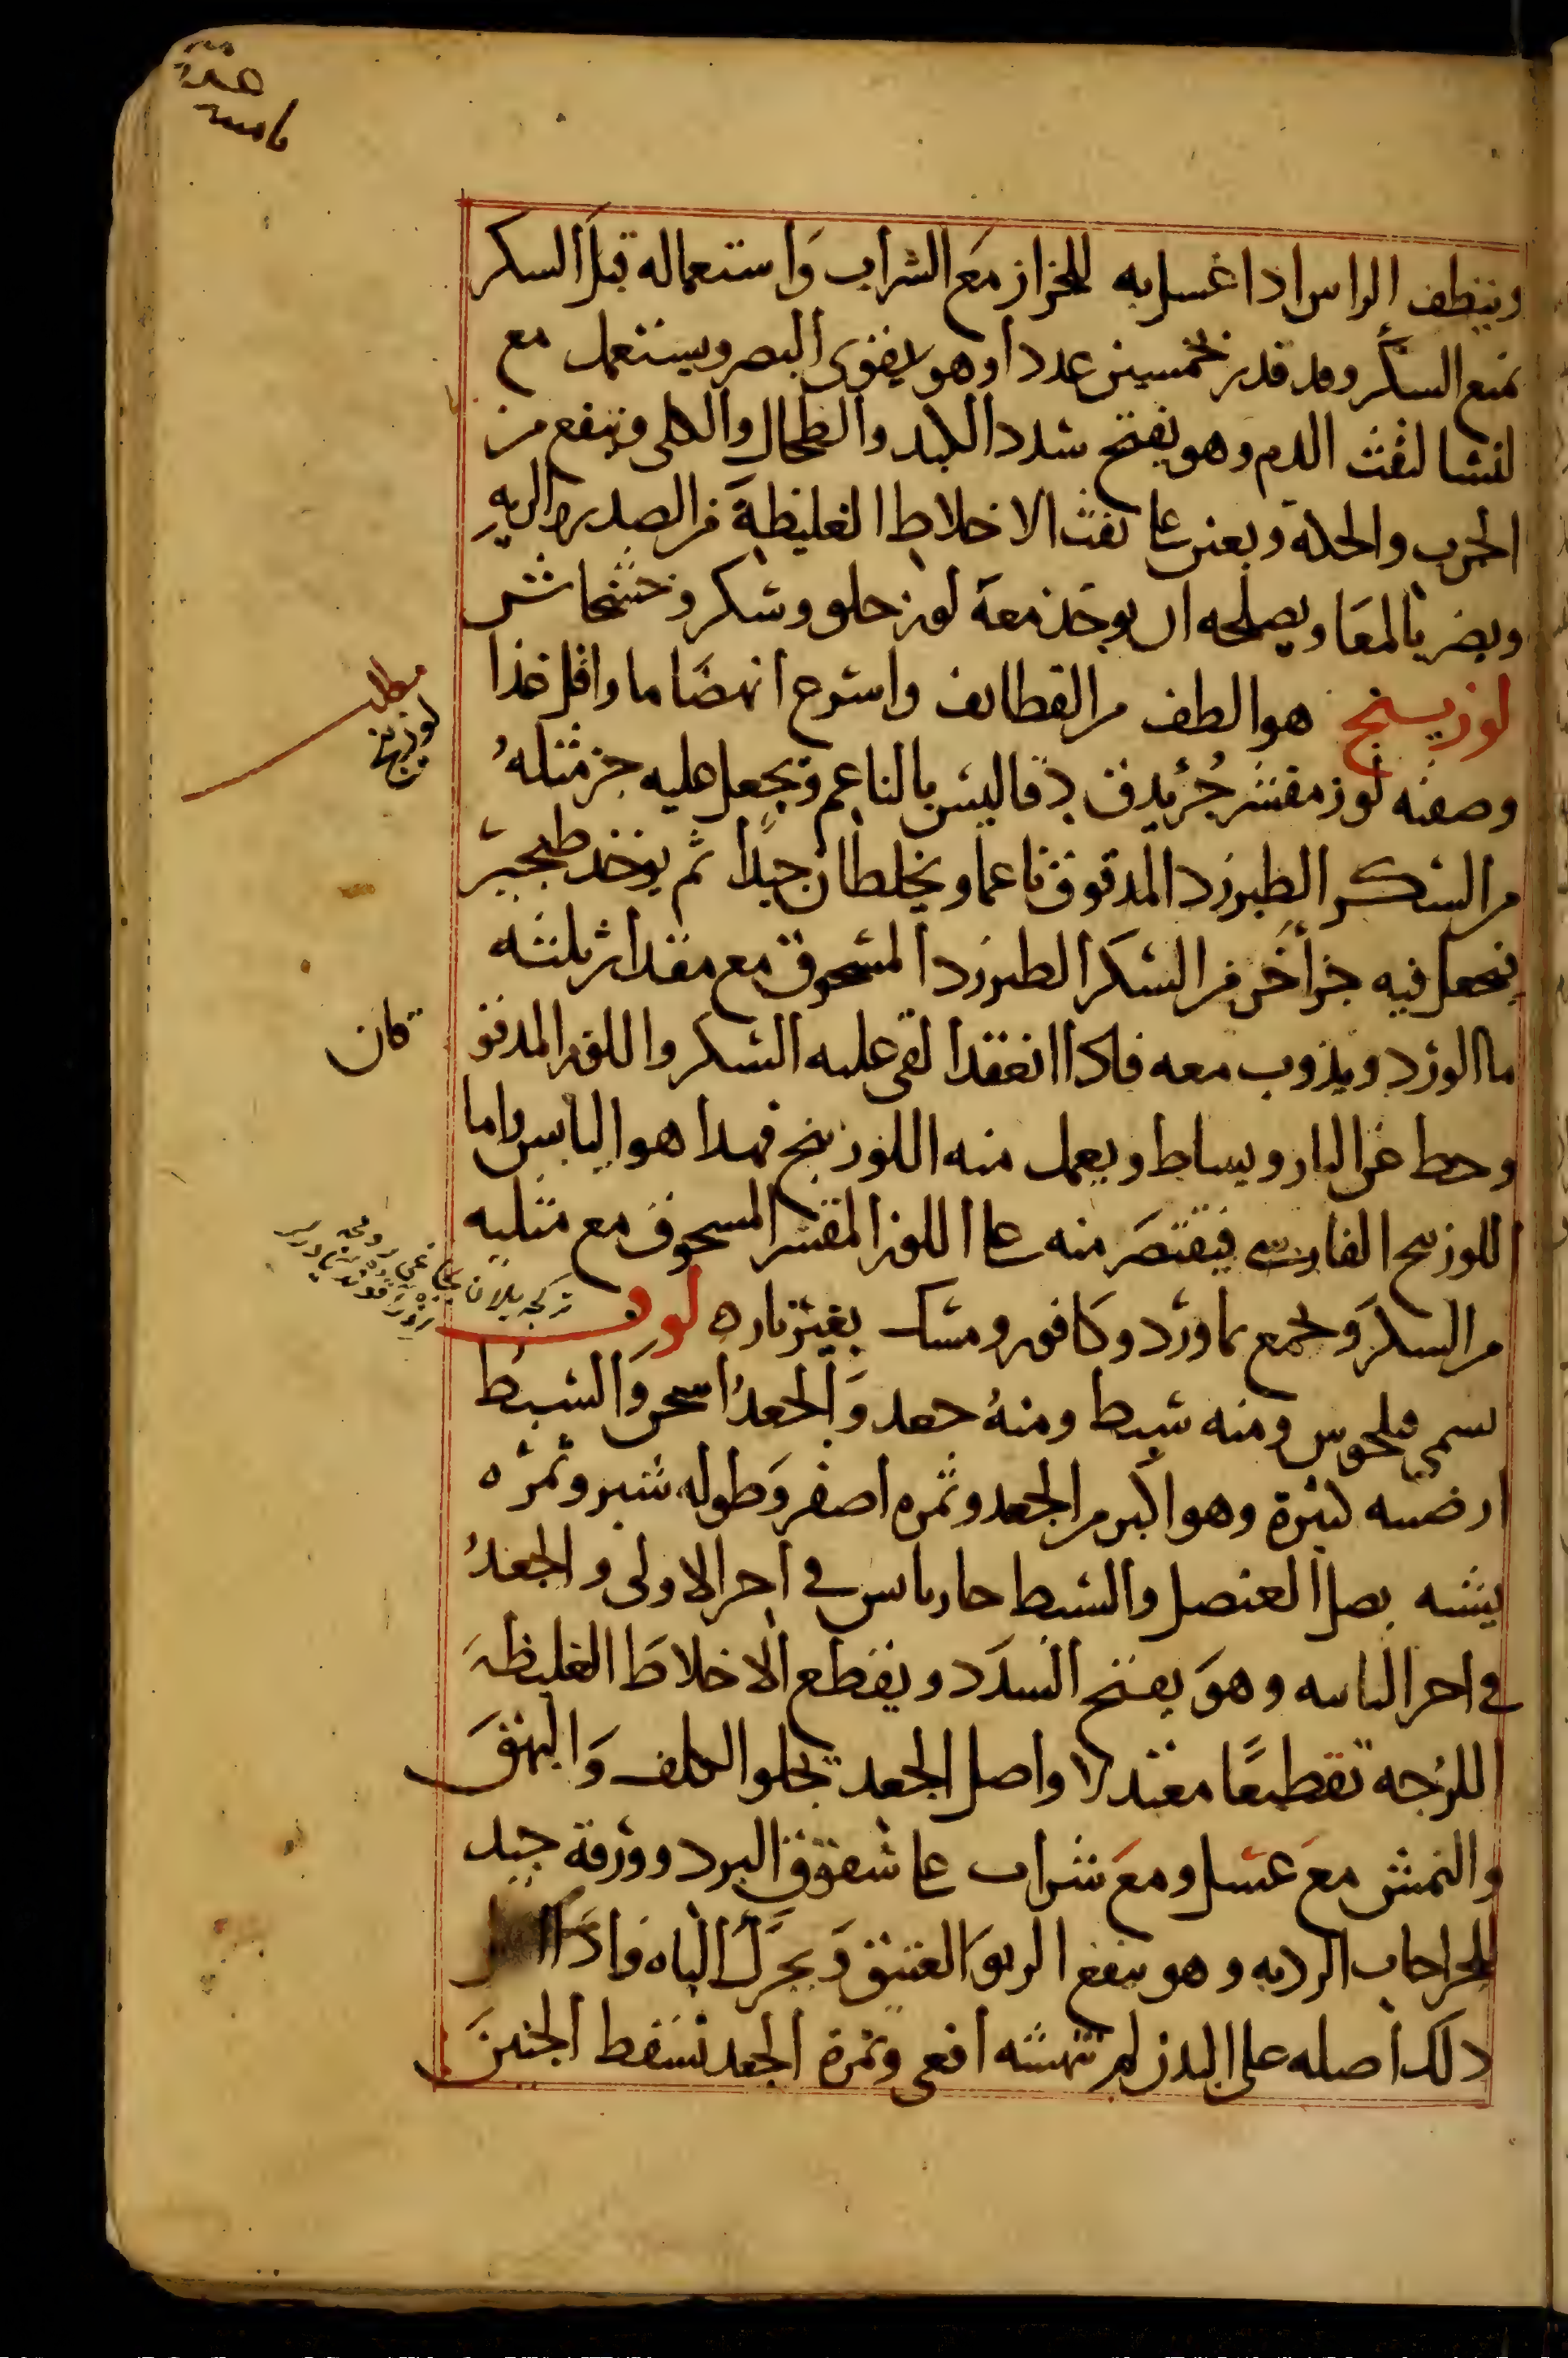 وينظف الراس ادا غسل به للحزاز مع الشراب واستعماله قبل السكر
تمنع السكر وقد قدر بخمسين عددا وهو يقوى البصر ويستعمل مع
لنشا لنفث الدم وهو يفتح سدد الكبد والطحال والكلى وينفع من
الجرب والحكة ويعين على نفث الاخلاط الغليظة من الصدر والريه
ويضر بالمعا ويصلحه ان يوخذ معه لوز حلو وسكر وخشخاش
لوزينج هو الطف من القطائف واسرع انهضاما واقل غذا
وصفته لوز مقشر جز يدق دقا ليس بالناعم ويجعل عليه جز مثله
من السكر الطبرزد المدقوق ناعما ويخلطان جيدا ثم يوخذ طجير
يجعل فيه جزا اخر من السكر الطبرزد المسحوق مع مقدار ثلثه
ما الورد ويذوب معه فاذا انعقد القى عليه السكر واللوز المدقو
وحط عن النار ويساط ويعمل منه اللوزينج فهدا هو اليابس واما
اللوزينج الفارسى فيقتصر منه على اللوز المقشر المسحوق مع مثليه
من السكر وتجمع بماورد وكافور ومسك بغير ناره لوف
يسمى فيلحوس ومنه سبط ومنه جعد والجعد اسخن والسبط
ارضيته كثيرة وهو اكبر من الجعد وثمره اصفر وطوله شبر وثمره
يشبه بصل العنصل والسبط حار يابس في اخر الاولى والجعد
في اخر الثانيه وهو يفتح السدد ويقطع الاخلاط الغليظة
اللزجه تقطيعا معتدلا واصل الجعد تجلو الكلف والبهق
والنمش مع عسل ومع شراب على شقوق البرد وورقه جيد
للجراحات الرديه وهو ينفع الربو العتيق ويحرك الباه واذا
دلك اصله على البدن لم تنهشه افعى وثمرة الجعد تسقط الجنين
مطلب
لوزينج
كان